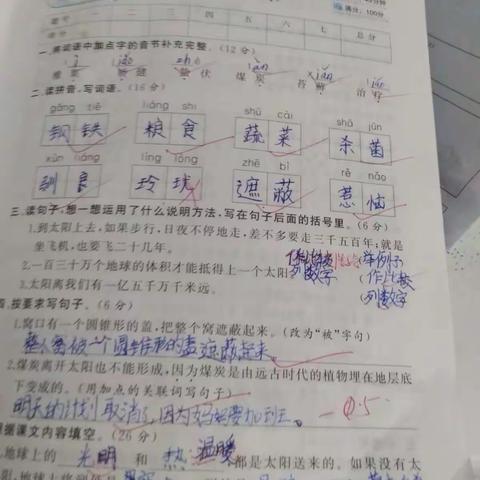 满分：100分
题号 一 二 三 四 五 六 七 总分
得分
一、将词语中加点字的音节补充完整。(12分)
蛰伏 煤炭 苔藓 治疗
二、读拼音，写词语。(16分)
gāng tiě liáng shi shū cài shā jūn
钢铁 粮食 蔬菜 杀菌
xùn liáng líng lóng zhē bì rě nǎo
驯良 玲珑 遮蔽 惹恼
三、读句子，想一想运用了什么说明方法，写在句子后面的括号里。(6分)
1.到太阳上去，如果步行，日夜不停地走，差不多要走三千五百年；就是
坐飞机，也要飞二十几年。 列数字 (举例子
2.一百三十万个地球的体积才能抵得上一个太阳 (作比较
3.太阳离我们有一亿五千万千米远。 列数字
四、按要求写句子。(6分)
1.窝口有一个圆锥形的盖，把整个窝遮蔽起来。(改为“被”字句)
整个窝被一个圆锥形的盖遮蔽起来。
2.煤炭离开太阳也不能形成，因为煤炭是由远古时代的植物埋在地层底
下变成的。(用加点的关联词写句子)
明天的计划取消了，因为妈妈要加班。 -0.5
根据课文内容填空。(26分)
地球上的 光明 和 热 温暖 都是太阳送来的。如果没有太